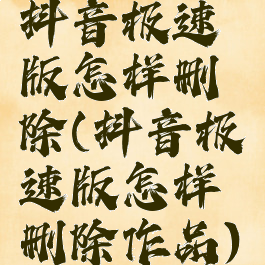 抖音极速
版怎样删
除(抖音极
速版怎样
删除作品)